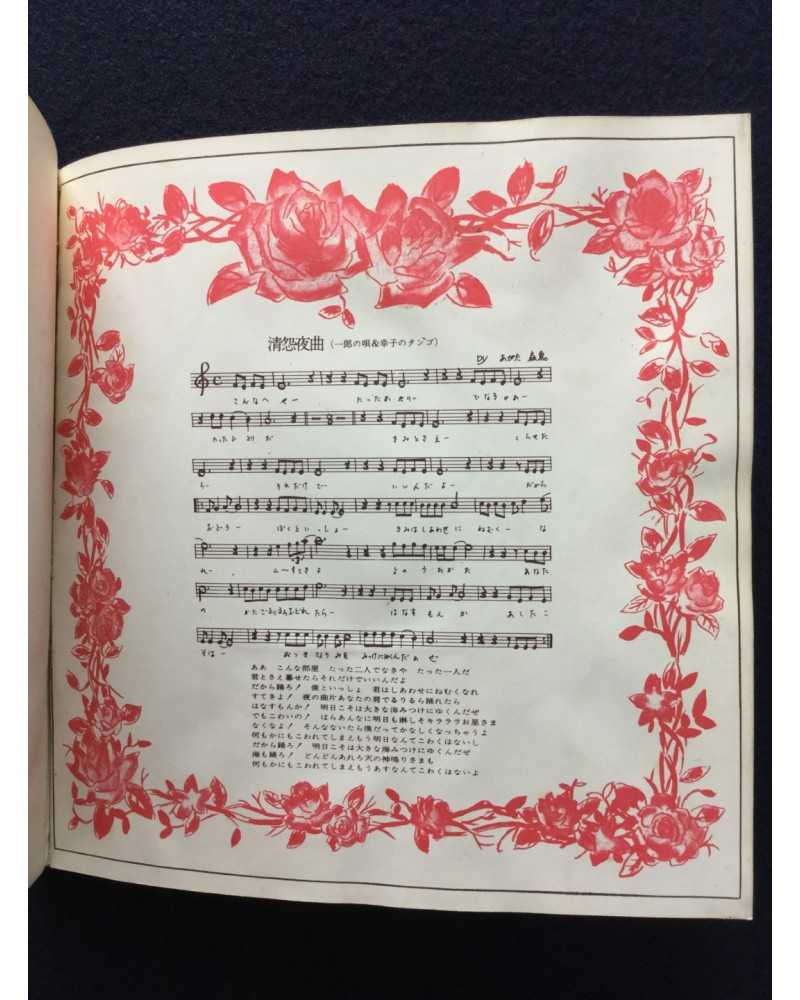 清怨夜曲（一郎の唄＆幸子のタンゴ）
by あがた 森魚
こんなへやー たったふたりー でなきゃあー
たったひとりだ きみとさえー くらせた
ら- それだけで- いいんだよー だから
おどろー ぼくといっしょー きみはしあわせに ねむくー な
はなすもんか あしたこ
そはー おっきなうみを みつけにゆくんだぁぜ
ああ こんな部屋 たった二人でなきや たった一人だ
君とさえ暮せたらそれだけでいいんだよ
だから踊ろ！ 僕といっしょ 君はしあわせにねむくなれ
すてきよ！ 夜の曲片あなたの肩でるりるら踊れたら
はなすもんか！ 明日こそは大きな海みつけにゆくんだぜ
でもこわいの！ ほらあんなに明日も淋しそキラララお星さま
なくなよ！ そんなないたら僕だってかなしくなっちゃうよ
何もかにもこわれてしまえもう明日なんてこわくはないし
だから踊ろ！ 明日こそは大きな海みつけにゆくんだぜ
海も踊ろ！ どんどんあれろ天の神鳴りさまも
何もかにもこわれてしまえもうあすなんてこわくはないよ